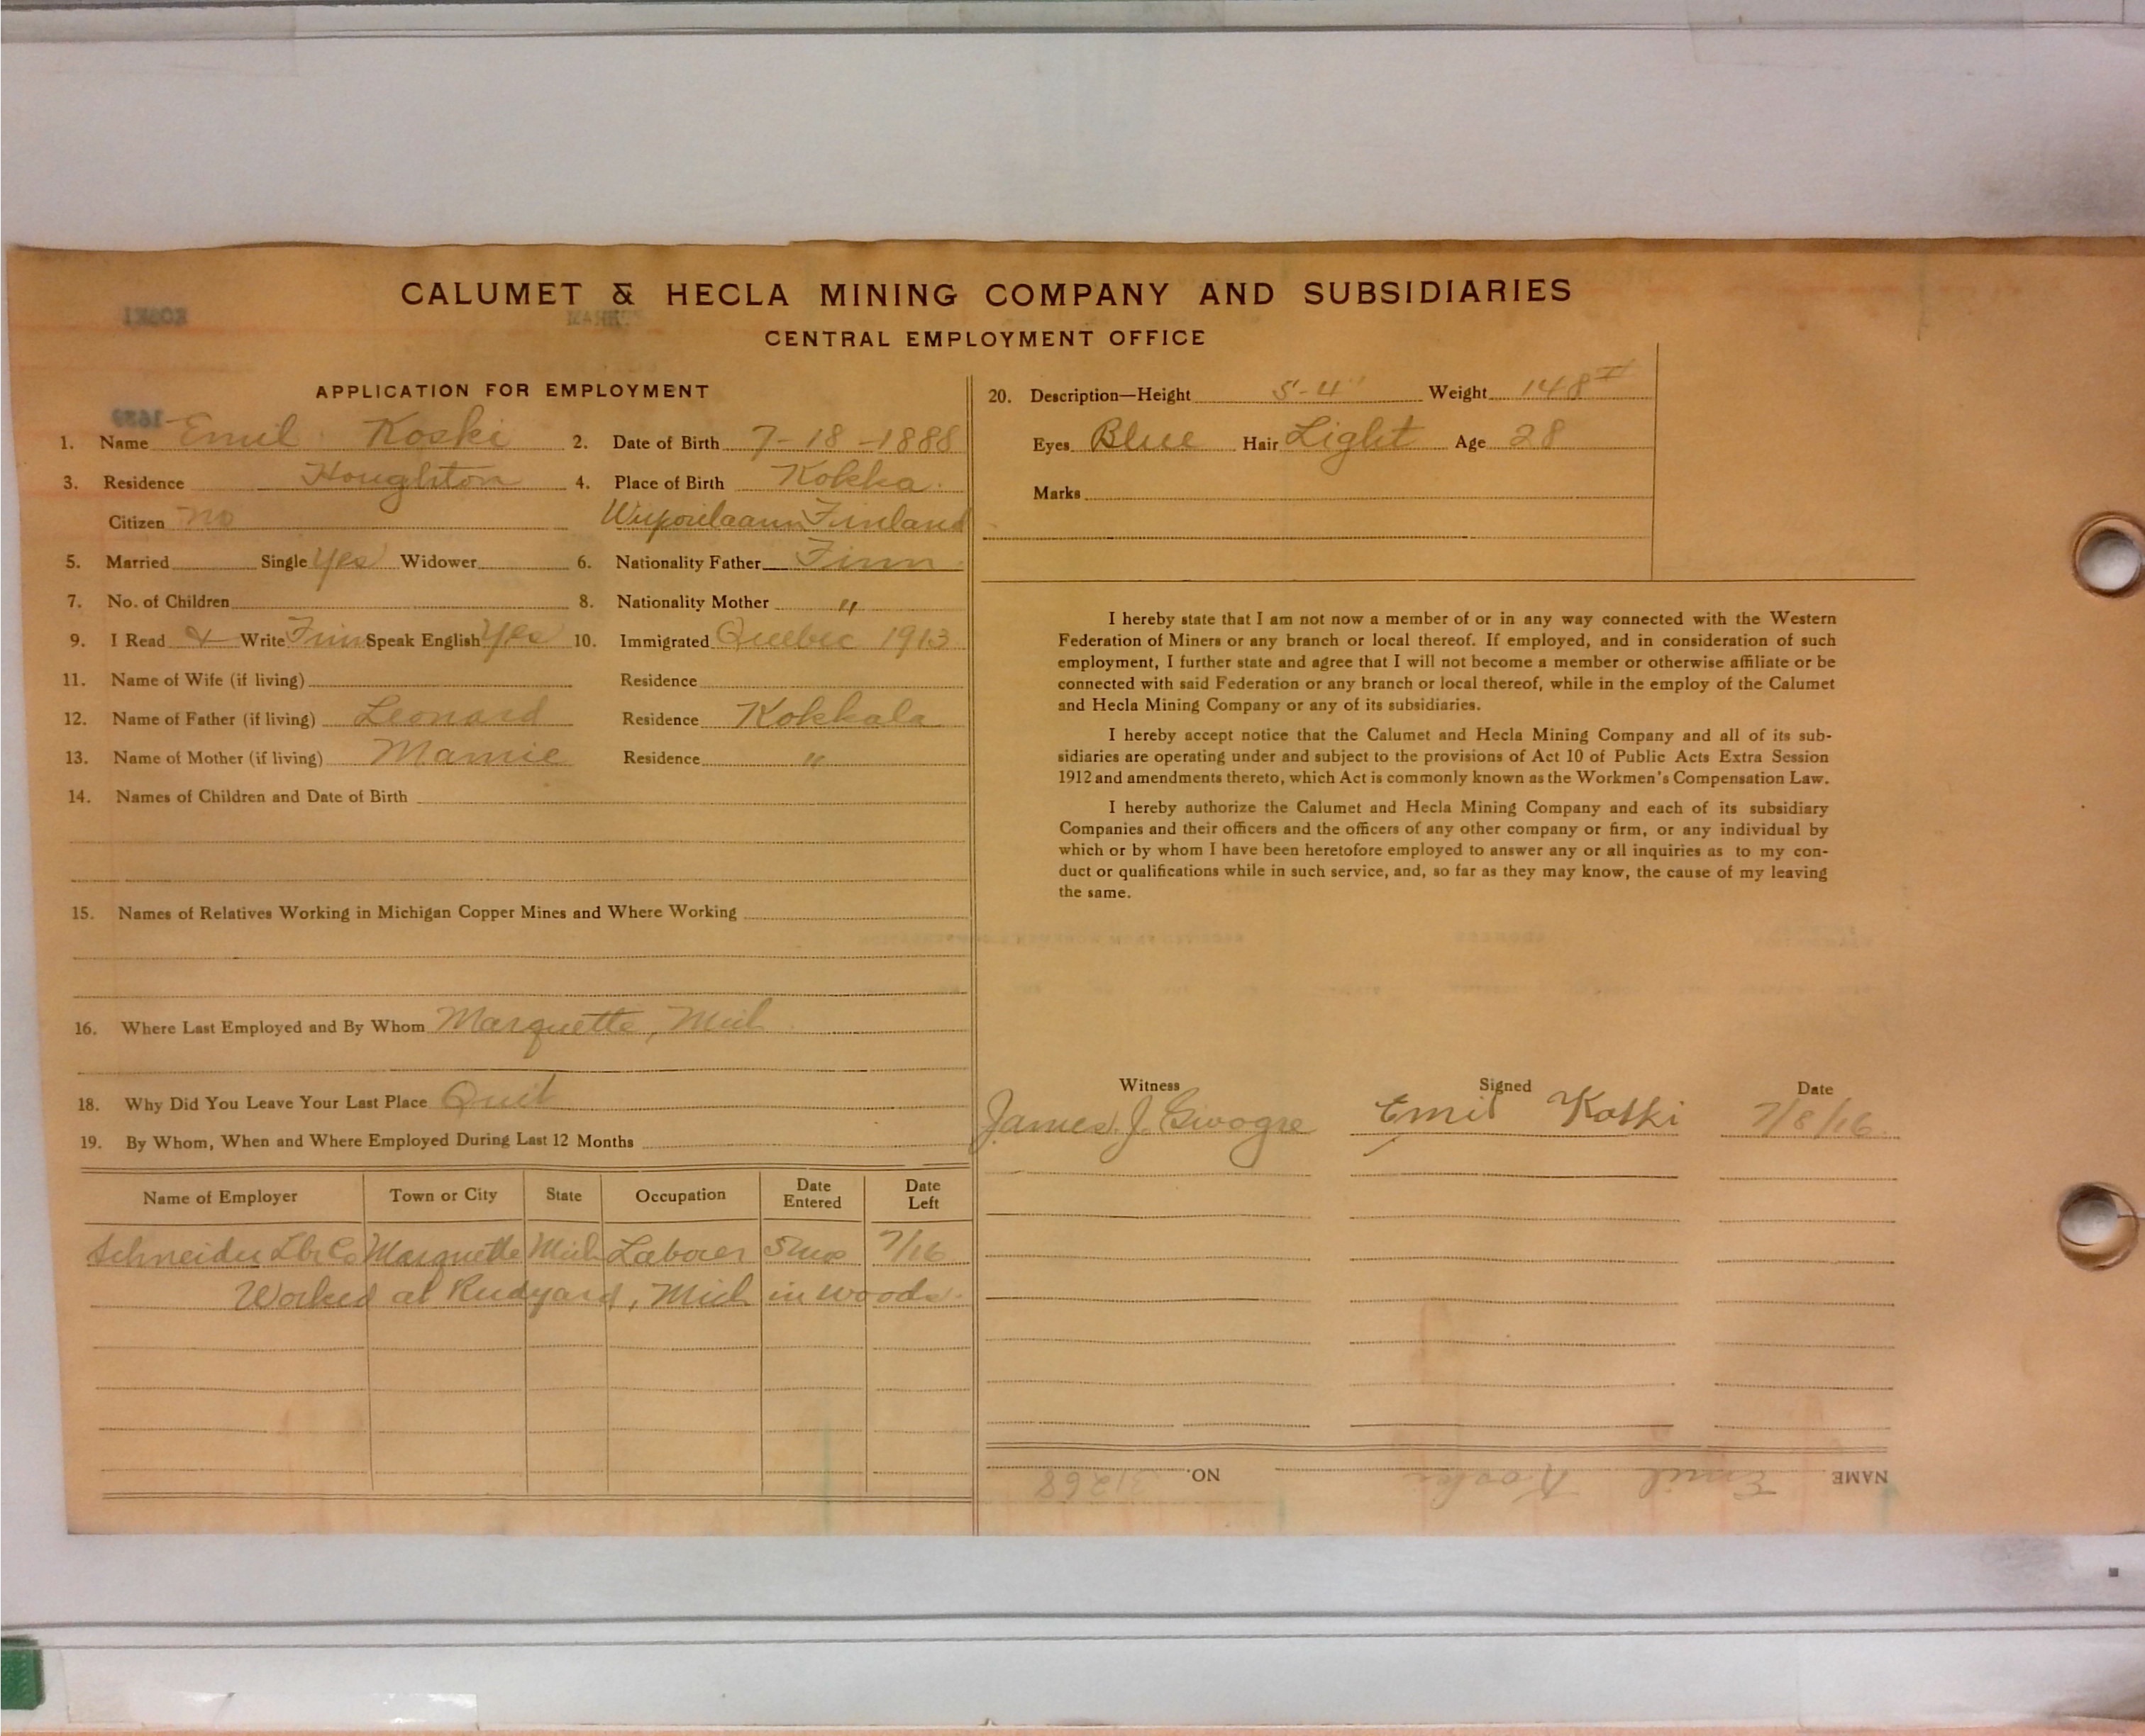 CALUMET & HECLA MINING COMPANY AND SUBSIDIARIES
CENTRAL EMPLOYMENT OFFICE
APPLICATION FOR EMPLOYMENT
1. Name Emil Koski 2. Date of Birth 7-18-1888
3. Residence Houghton 4. Place of Birth Kokka
Citizen no Finland
5. Married Single Yes Widower 6. Nationality Father Finn
7. No. of Children 8. Nationality Mother "
9. I Read & Write Finn Speak English Yes 10. Immigrated Quebec 1913
11. Name of Wife (if living) Residence
12. Name of Father (if living) Leonard Residence Kokkala
13. Name of Mother (if living) Mamie Residence "
14. Names of Children and Date of Birth
15. Names of Relatives Working in Michigan Copper Mines and Where Working
16. Where Last Employed and By Whom Marquette, Mich
18. Why Did You Leave Your Last Place Quit
19. By Whom, When and Where Employed During Last 12 Months
Name of Employer Town or City State Occupation Date Entered Date Left
Schneider Lbr Co Marquette Mich Laborer 5 mos 7/16
Worked at Rudyard, Mich in woods.
20. Description—Height 5'-4" Weight 148#
Eyes Blue Hair Light Age 28
Marks
I hereby state that I am not now a member of or in any way connected with the Western
Federation of Miners or any branch or local thereof. If employed, and in consideration of such
employment, I further state and agree that I will not become a member or otherwise affiliate or be
connected with said Federation or any branch or local thereof, while in the employ of the Calumet
and Hecla Mining Company or any of its subsidiaries.
I hereby accept notice that the Calumet and Hecla Mining Company and all of its sub-
sidiaries are operating under and subject to the provisions of Act 10 of Public Acts Extra Session
1912 and amendments thereto, which Act is commonly known as the Workmen's Compensation Law.
I hereby authorize the Calumet and Hecla Mining Company and each of its subsidiary
Companies and their officers and the officers of any other company or firm, or any individual by
which or by whom I have been heretofore employed to answer any or all inquiries as to my con-
duct or qualifications while in such service, and, so far as they may know, the cause of my leaving
the same.
Witness Signed Date
James J. Emil Koski 7/8/16
NAME Emil Koski NO. 31268